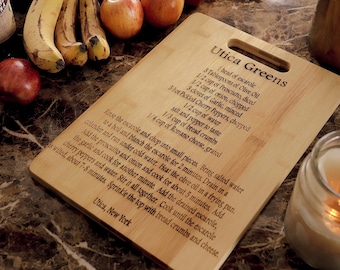 Utica Greens
1 head of escarole
3 Tablespoons of Olive Oil
1/2 cup of Prosciutto, diced
1/2 cup of onion, chopped
3 cloves of Garlic, minced
Hot Pickled Cherry Peppers, chopped
salt and pepper to taste
1/2 cup of Bread crumbs
1/4 cup of Romano cheese, grated
escarole and chop into small pieces. Bring salted water
to a boil and blanch the escarole for 2 minutes. Drain in a
and set aside. Heat the olive oil in a frying pan.
Add the prosciutto and onion and cook for about 5 minutes. Add
the garlic and cook for another minute. Add the drained escarole,
cherry peppers and water. Stir all together. Cook until the escarole
about 5 minutes. Sprinkle the top with bread crumbs and cheese.
Utica, New York